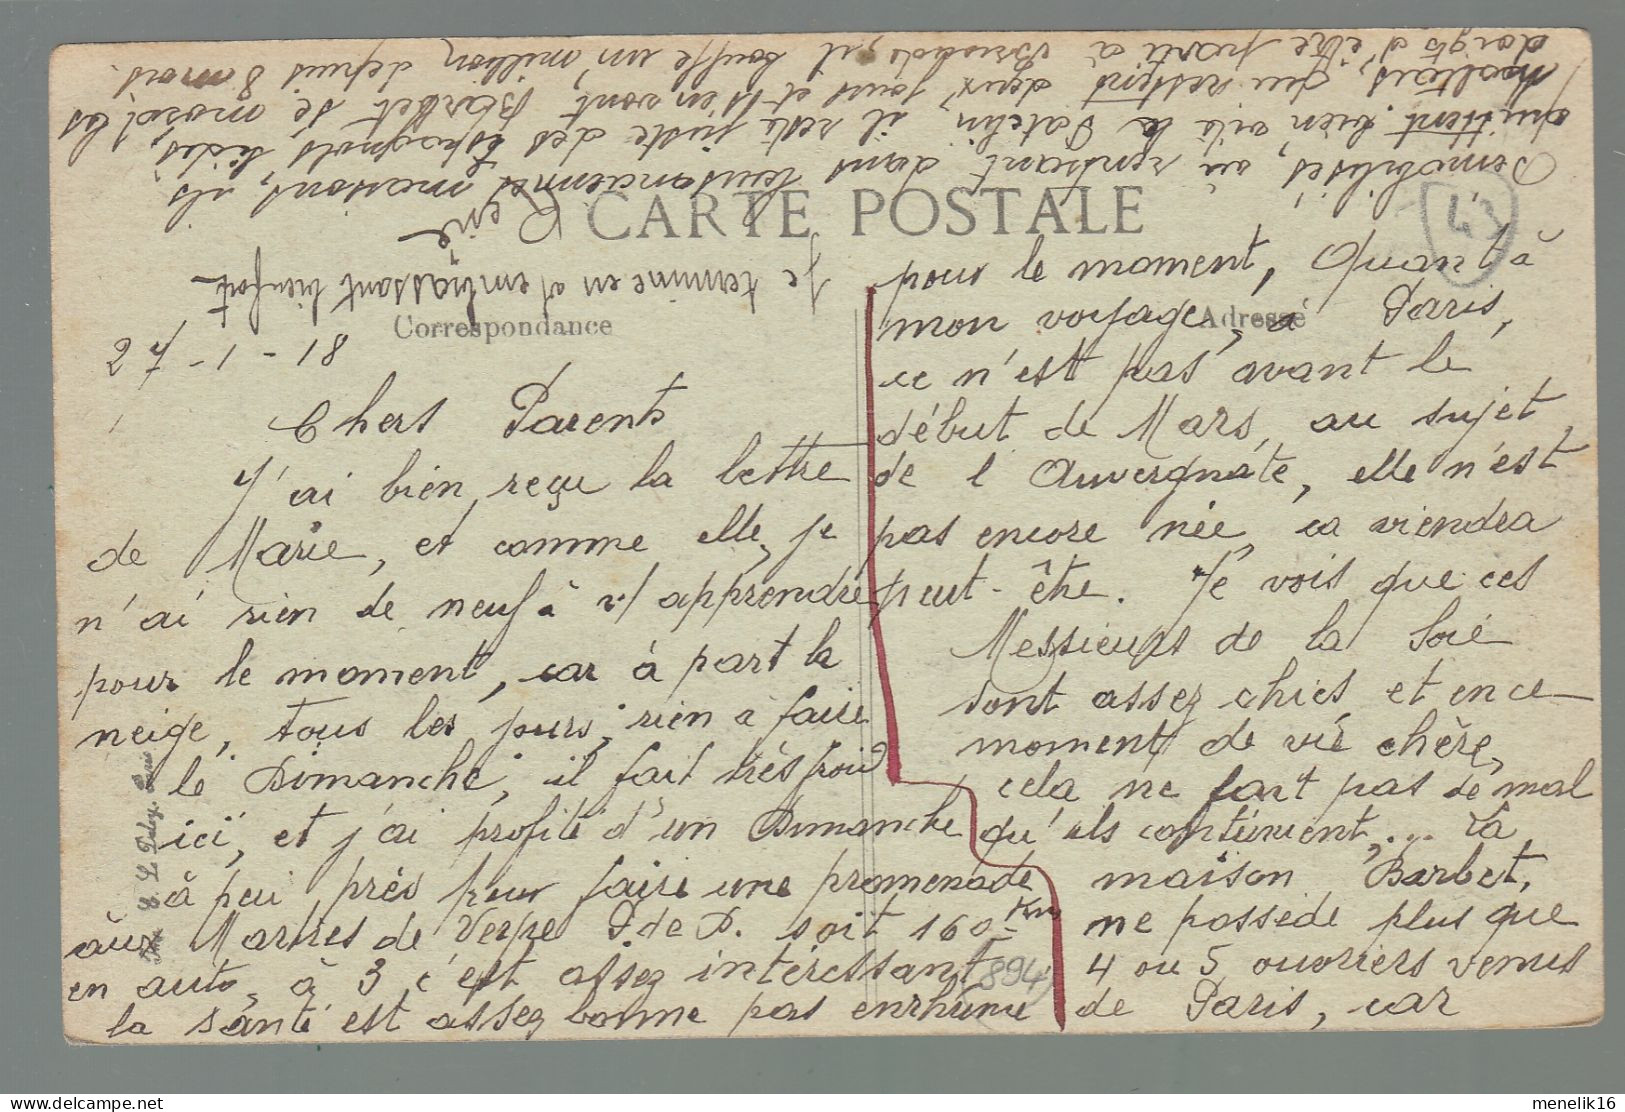 CARTE POSTALE
Correspondance
Adresse
43
81 - 1 - 72
Chers Parents
J'ai bien reçu la lettre
de Marie, et comme elle, je
n'ai rien de neuf à v/ apprendre
pour le moment, car à part la
neige, tous les jours, rien à faire
le Dimanche, il fait très froid
ici, et j'ai profité d'un Dimanche
à peu près pour faire une promenade
aux Martres de Veyre P. de D. soit 160 Km
en auto, à 3 c'est assez intéressant
la santé est assez bonne pas enrhumé
pour le moment, Quant à
mon voyage, à Paris,
ce n'est pas avant le
début de Mars, au sujet
de l'Auvergnate, elle n'est
pas encore née, ca viendra
peut-être. Je vois que ces
Messieurs de la Soie
sont assez chics, et en ce
moment de vie chère,
cela ne fait pas de mal
qu'ils continuent,... La
maison Barbet,
ne possède plus que
4 ou 5 ouvriers venus
de Paris, car
Démobilisés, où rentrant dans leurs anciennes maisons, ils
quittent bien vite le Patelin, il reste juste des Espagnols, Sidis,
Maltais, qui restent deux jours et s'en vont Barbet se mord les
doigts d'être parti à Brioude, il bouffe un million depuis 8 mois.
Je termine en v/ embrassant bien fort
René
894
Imp. E. Le Deley, Paris
menelik16